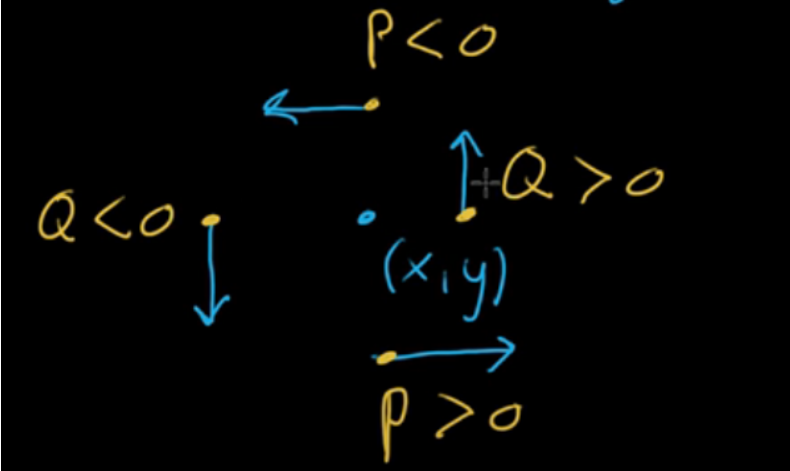 P < 0
Q > 0
Q < 0
(x, y)
P > 0